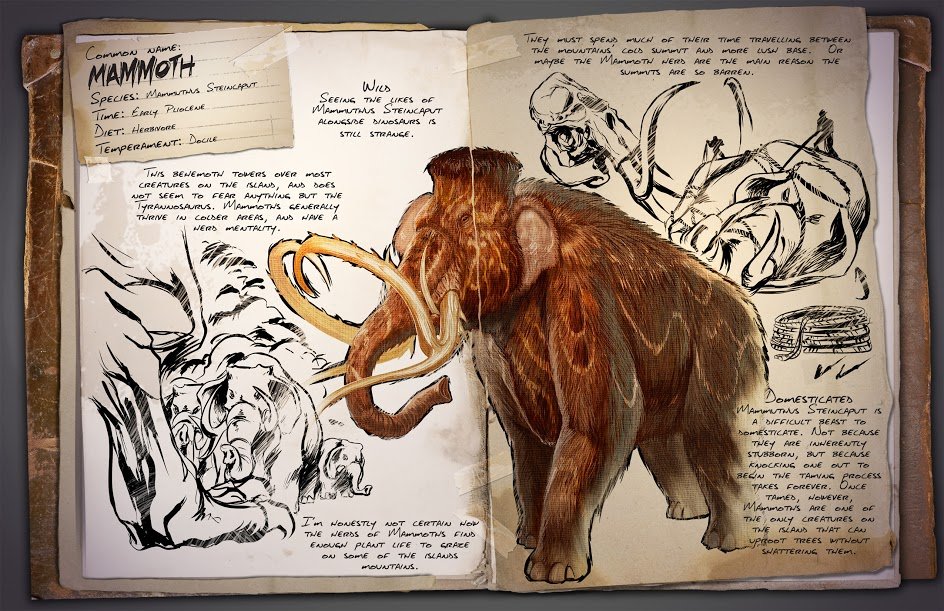 Common name:
MAMMOTH
Species: Mammuthus Steincaput
Time: Early Pliocene
Diet: Herbivore
Temperament: Docile
Wild
Seeing the likes of
Mammuthus Steincaput
alongside dinosaurs is
still strange.
This behemoth towers over most
creatures on the island, and does
not seem to fear anything but the
Tyrannosaurus. Mammoths generally
thrive in colder areas, and have a
herd mentality.
I'm honestly not certain how
the herds of Mammoths find
enough plant life to graze
on some of the islands
mountains.
They must spend much of their time travelling between
the mountains' cold summit and more lush base. Or
maybe the Mammoth herd are the main reason the
summits are so barren.
Domesticated
Mammuthus Steincaput is
a difficult beast to
domesticate. Not because
they are inherently
stubborn, but because
knocking one out to
begin the taming process
takes forever. Once
tamed, however,
Mammoths are one of
the only creatures on
the island that can
uproot trees without
shattering them.